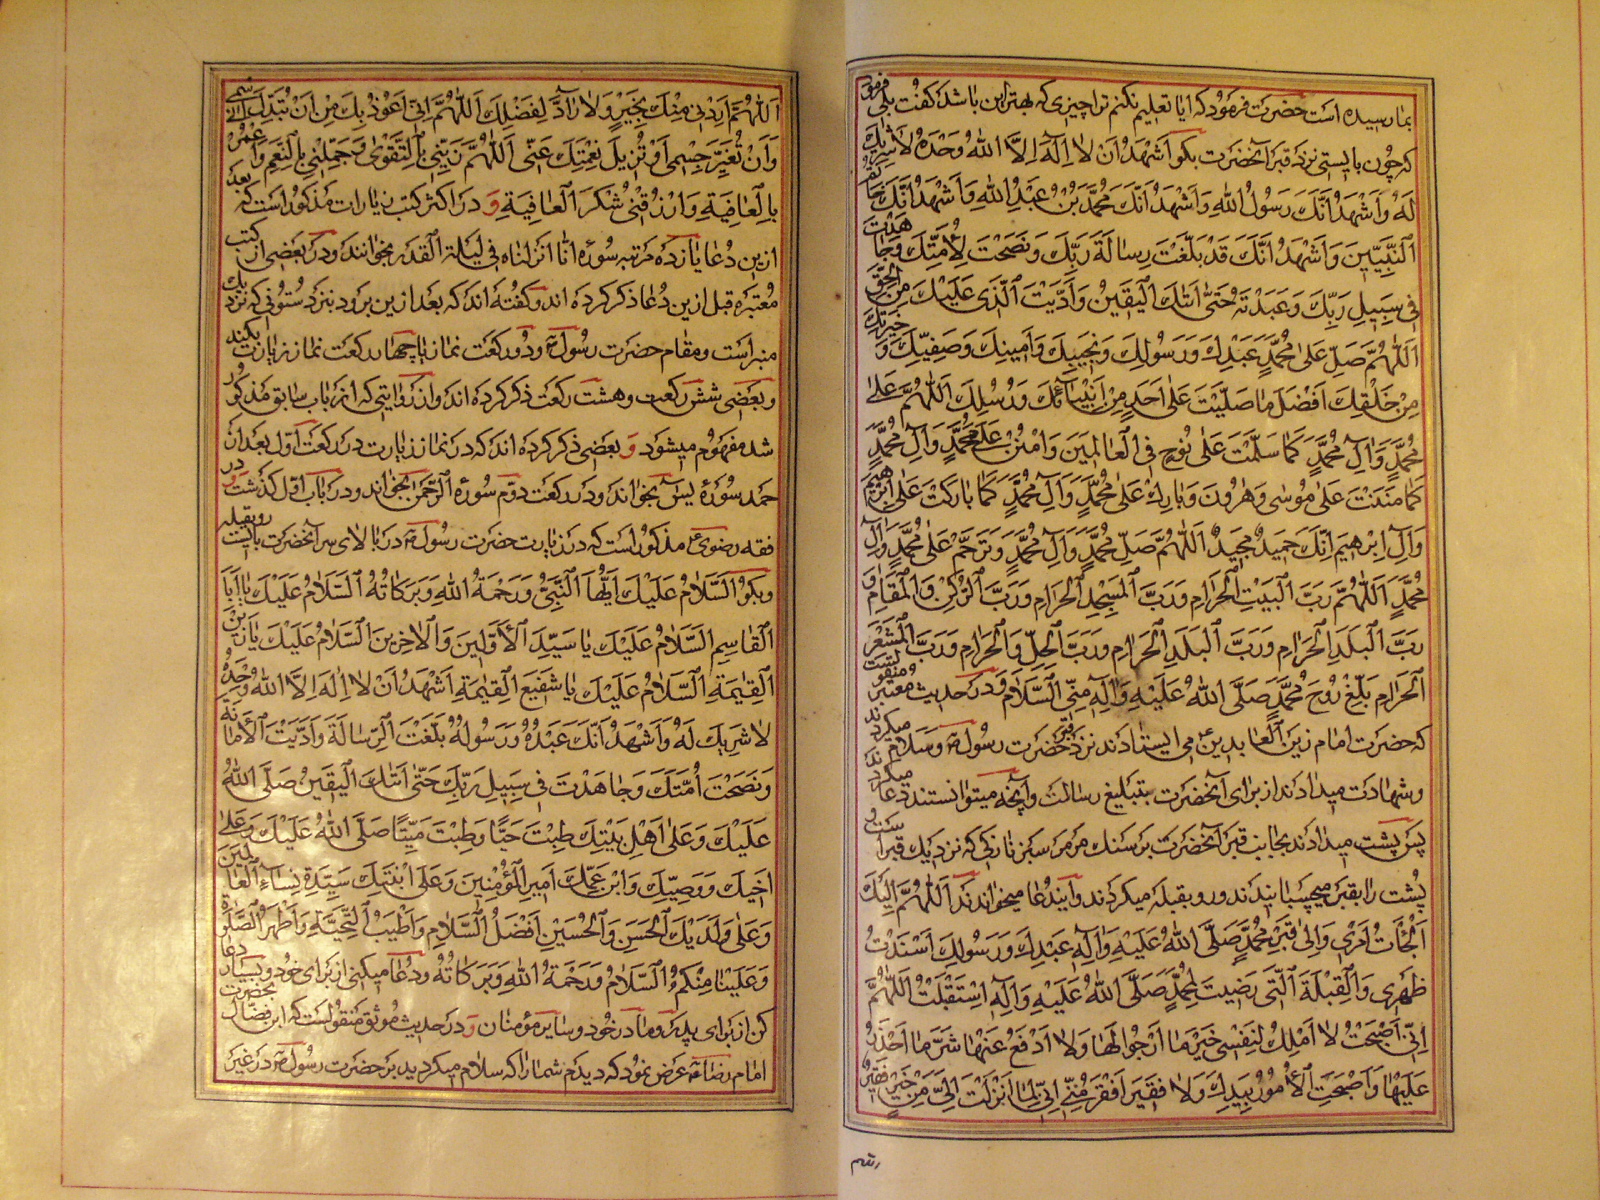 بما رسیده است حضرت فرمود که ایا تعلیم نکنم ترا چیزی که بهتر این باشد گفت بلی فرمود
که چون بایستی نزد قبر آنحضرت بگو اَشْهَدُ اَنْ لا اِلٰهَ اِلَّا اللهُ وَحْدَهُ لا شَرِیكَ
لَهُ وَاَشْهَدُ اَنَّكَ رَسُولُ اللهِ وَاَشْهَدُ اَنَّكَ مُحَمَّدُ بْنُ عَبْدِ اللهِ وَاَشْهَدُ اَنَّكَ خاتَمُ
النَّبِیّینَ وَاَشْهَدُ اَنَّكَ قَدْ بَلَّغْتَ رِسالَةَ رَبِّكَ وَنَصَحْتَ لِاُمَّتِكَ وَجاهَدْتَ
فی سَبیلِ رَبِّكَ وَعَبَدْتَهُ حَتّٰی اَتٰكَ الْیَقینُ وَاَدَّیْتَ الَّذی عَلَیْكَ مِنَ الْحَقِّ
اَللّٰهُمَّ صَلِّ عَلٰی مُحَمَّدٍ عَبْدِكَ وَرَسُولِكَ وَنَجیبِكَ وَاَمینِكَ وَصَفِیِّكَ وَخِیَرَتِكَ
مِنْ خَلْقِكَ اَفْضَلَ ما صَلَّیْتَ عَلٰی اَحَدٍ مِنْ اَنْبِیائِكَ وَرُسُلِكَ اَللّٰهُمَّ عَلٰی
مُحَمَّدٍ وَآلِ مُحَمَّدٍ كَما سَلَّمْتَ عَلٰی نُوحٍ فِی الْعالَمینَ وَامْنُنْ عَلٰی مُحَمَّدٍ وَآلِ مُحَمَّدٍ
كَما مَنَنْتَ عَلٰی مُوسٰی وَهٰرُونَ وَبارِكْ عَلٰی مُحَمَّدٍ وَآلِ مُحَمَّدٍ كَما بارَكْتَ عَلٰی اِبْرٰهیمَ
وَآلِ اِبْرٰهیمَ اِنَّكَ حَمیدٌ مَجیدٌ اَللّٰهُمَّ صَلِّ مُحَمَّدٍ وَآلِ مُحَمَّدٍ وَتَرَحَّمْ عَلٰی مُحَمَّدٍ وَآلِ
مُحَمَّدٍ اَللّٰهُمَّ رَبَّ الْبَیْتِ الْحَرامِ وَرَبَّ الْمَسْجِدِ الْحَرامِ وَرَبَّ الرُّكْنِ وَالْمَقامِ وَ
رَبَّ الْبَلَدِ الْحَرامِ وَرَبَّ الْبَلَدِ الْحَرامِ وَرَبَّ الْحِلِّ وَالْحَرامِ وَرَبَّ الْمَشْعَرِ
الْحَرامِ بَلِّغْ رُوحَ مُحَمَّدٍ صَلَّی اللهُ عَلَیْهِ وَآلِهِ مِنِّی السَّلامُ و در حدیث معتبر منقولست
که حضرت امام زین العابدین ع می ایستادند نزد قبر حضرت رسول ص و سلام میکردند
و شهادت میدادند از برای آنحضرت بتبلیغ رسالت و آنچه میتوانستند دعا میکردند
پس پشت میدادند بجانب قبر آنحضرت بر سنک مرمر سبز نازکی که نزدیك قبر است و
پشت را بقبر میچسبانیدند و رو بقبله میکردند و ایندعا میخواندند اَللّٰهُمَّ اِلَیْكَ
اَلْجَأْتُ اَمْری وَاِلٰی قَبْرِ مُحَمَّدٍ صَلَّی اللهُ عَلَیْهِ وَآلِهِ عَبْدِكَ وَرَسُولِكَ اَسْنَدْتُ
ظَهْری وَالْقِبْلَةَ الَّتی رَضیتَ لِمُحَمَّدٍ صَلَّی اللهُ عَلَیْهِ وَآلِهِ اسْتَقْبَلْتُ اَللّٰهُمَّ
اِنّی اَصْبَحْتُ لا اَمْلِكُ لِنَفْسی خَیْرَ ما اَرْجُوا لَها وَلا اَدْفَعُ عَنْها شَرَّ ما اَحْذَرُ
عَلَیْها وَاَصْبَحَتِ الْاُمُورُ بِیَدِكَ وَلا فَقیرَ اَفْقَرُ مِنّی اِنّی لِما اَنْزَلْتَ اِلَیَّ مِنْ خَیْرٍ فَقیرٌ
اَللّٰهُمَّ ارْدُدْنی مِنْكَ بِخَیْرٍ وَلا رادَّ لِفَضْلِكَ اَللّٰهُمَّ اِنّی اَعُوذُ بِكَ مِنْ اَنْ تُبَدِّلَ اسْمی
وَاَنْ تُغَیِّرَ جِسْمی اَوْ تُزیلَ نِعْمَتَكَ عَنّی اَللّٰهُمَّ زَیِّنّی بِالتَّقْوٰی وَجَمِّلْنی بِالنِّعَمِ وَاعْمُرْنی
بِالْعافِیَةِ وَارْزُقْنی شُكْرَ الْعافِیَةِ وَ در اکثر کتب زیارات مذکور است که بعد
ازین دعا یازده مرتبه سوره انا انزلناه فی لیلة القدر بخوانند و در بعضی از کتب
معتبره قبل ازین دعا ذکر کرده اند و گفته اند که بعد ازین برود بنزد ستونی که نزدیك
منبر است و مقام حضرت رسول ص و دو رکعت نماز یا چهار رکعت نماز زیارت بکند
و بعضی شش رکعت و هشت رکعت ذکر کرده اند و از روایتی که از باب سابق مذکور
شد مفهوم میشود و بعضی ذکر کرده اند که در نماز زیارت در رکعت اول بعد از
حمد سوره یس بخواند و در رکعت دوم سوره الرحمن بخواند و در باب اول گذشت و در
فقه رضوی ع مذکور است که در زیارت حضرت رسول ص در بالای سر آنحضرت بایست رو بقبله
و بگو اَلسَّلامُ عَلَیْكَ اَیُّهَا النَّبِیُّ وَرَحْمَةُ اللهِ وَبَرَكاتُهُ اَلسَّلامُ عَلَیْكَ یا اَبَا
الْقاسِمِ اَلسَّلامُ عَلَیْكَ یا سَیِّدَ الْاَوَّلینَ وَالْاٰخِرینَ اَلسَّلامُ عَلَیْكَ یا زَیْنَ
الْقِیٰمَةِ اَلسَّلامُ عَلَیْكَ یا شَفیعَ الْقِیٰمَةِ اَشْهَدُ اَنْ لا اِلٰهَ اِلَّا اللهُ وَحْدَهُ
لا شَریكَ لَهُ وَاَشْهَدُ اَنَّكَ عَبْدُهُ وَرَسُولُهُ بَلَّغْتَ الرِّسالَةَ وَاَدَّیْتَ الْاَمانَةَ
وَنَصَحْتَ اُمَّتَكَ وَجاهَدْتَ فی سَبیلِ رَبِّكَ حَتّٰی اَتٰكَ الْیَقینُ صَلَّی اللهُ
عَلَیْكَ وَعَلٰی اَهْلِ بَیْتِكَ طِبْتَ حَیًّا وَطِبْتَ مَیِّتًا صَلَّی اللهُ عَلَیْكَ وَعَلٰی
اَخیكَ وَوَصِیِّكَ وَابْنِ عَمِّكَ اَمیرِ الْمُؤْمِنینَ وَعَلٰی ابْنَتِكَ سَیِّدَةِ نِساءِ الْعالَمینَ
وَعَلٰی وَلَدَیْكَ الْحَسَنِ وَالْحُسَیْنِ اَفْضَلُ السَّلامِ وَاَطْیَبُ التَّحِیَّةِ وَاَطْهَرُ الصَّلٰوةِ
وَعَلَیْنا مِنْكُمُ السَّلامُ وَرَحْمَةُ اللهِ وَبَرَكاتُهُ و دعا میکنی از برای خود و بسیار دعا
کن از برای پدر و مادر خود و سایر مؤمنان و در حدیث موثق منقولست که ابن فضال بحضرت
امام رضا ع عرض نمود که دیدم شما را که سلام میکردید بر حضرت رسول ص در غیر